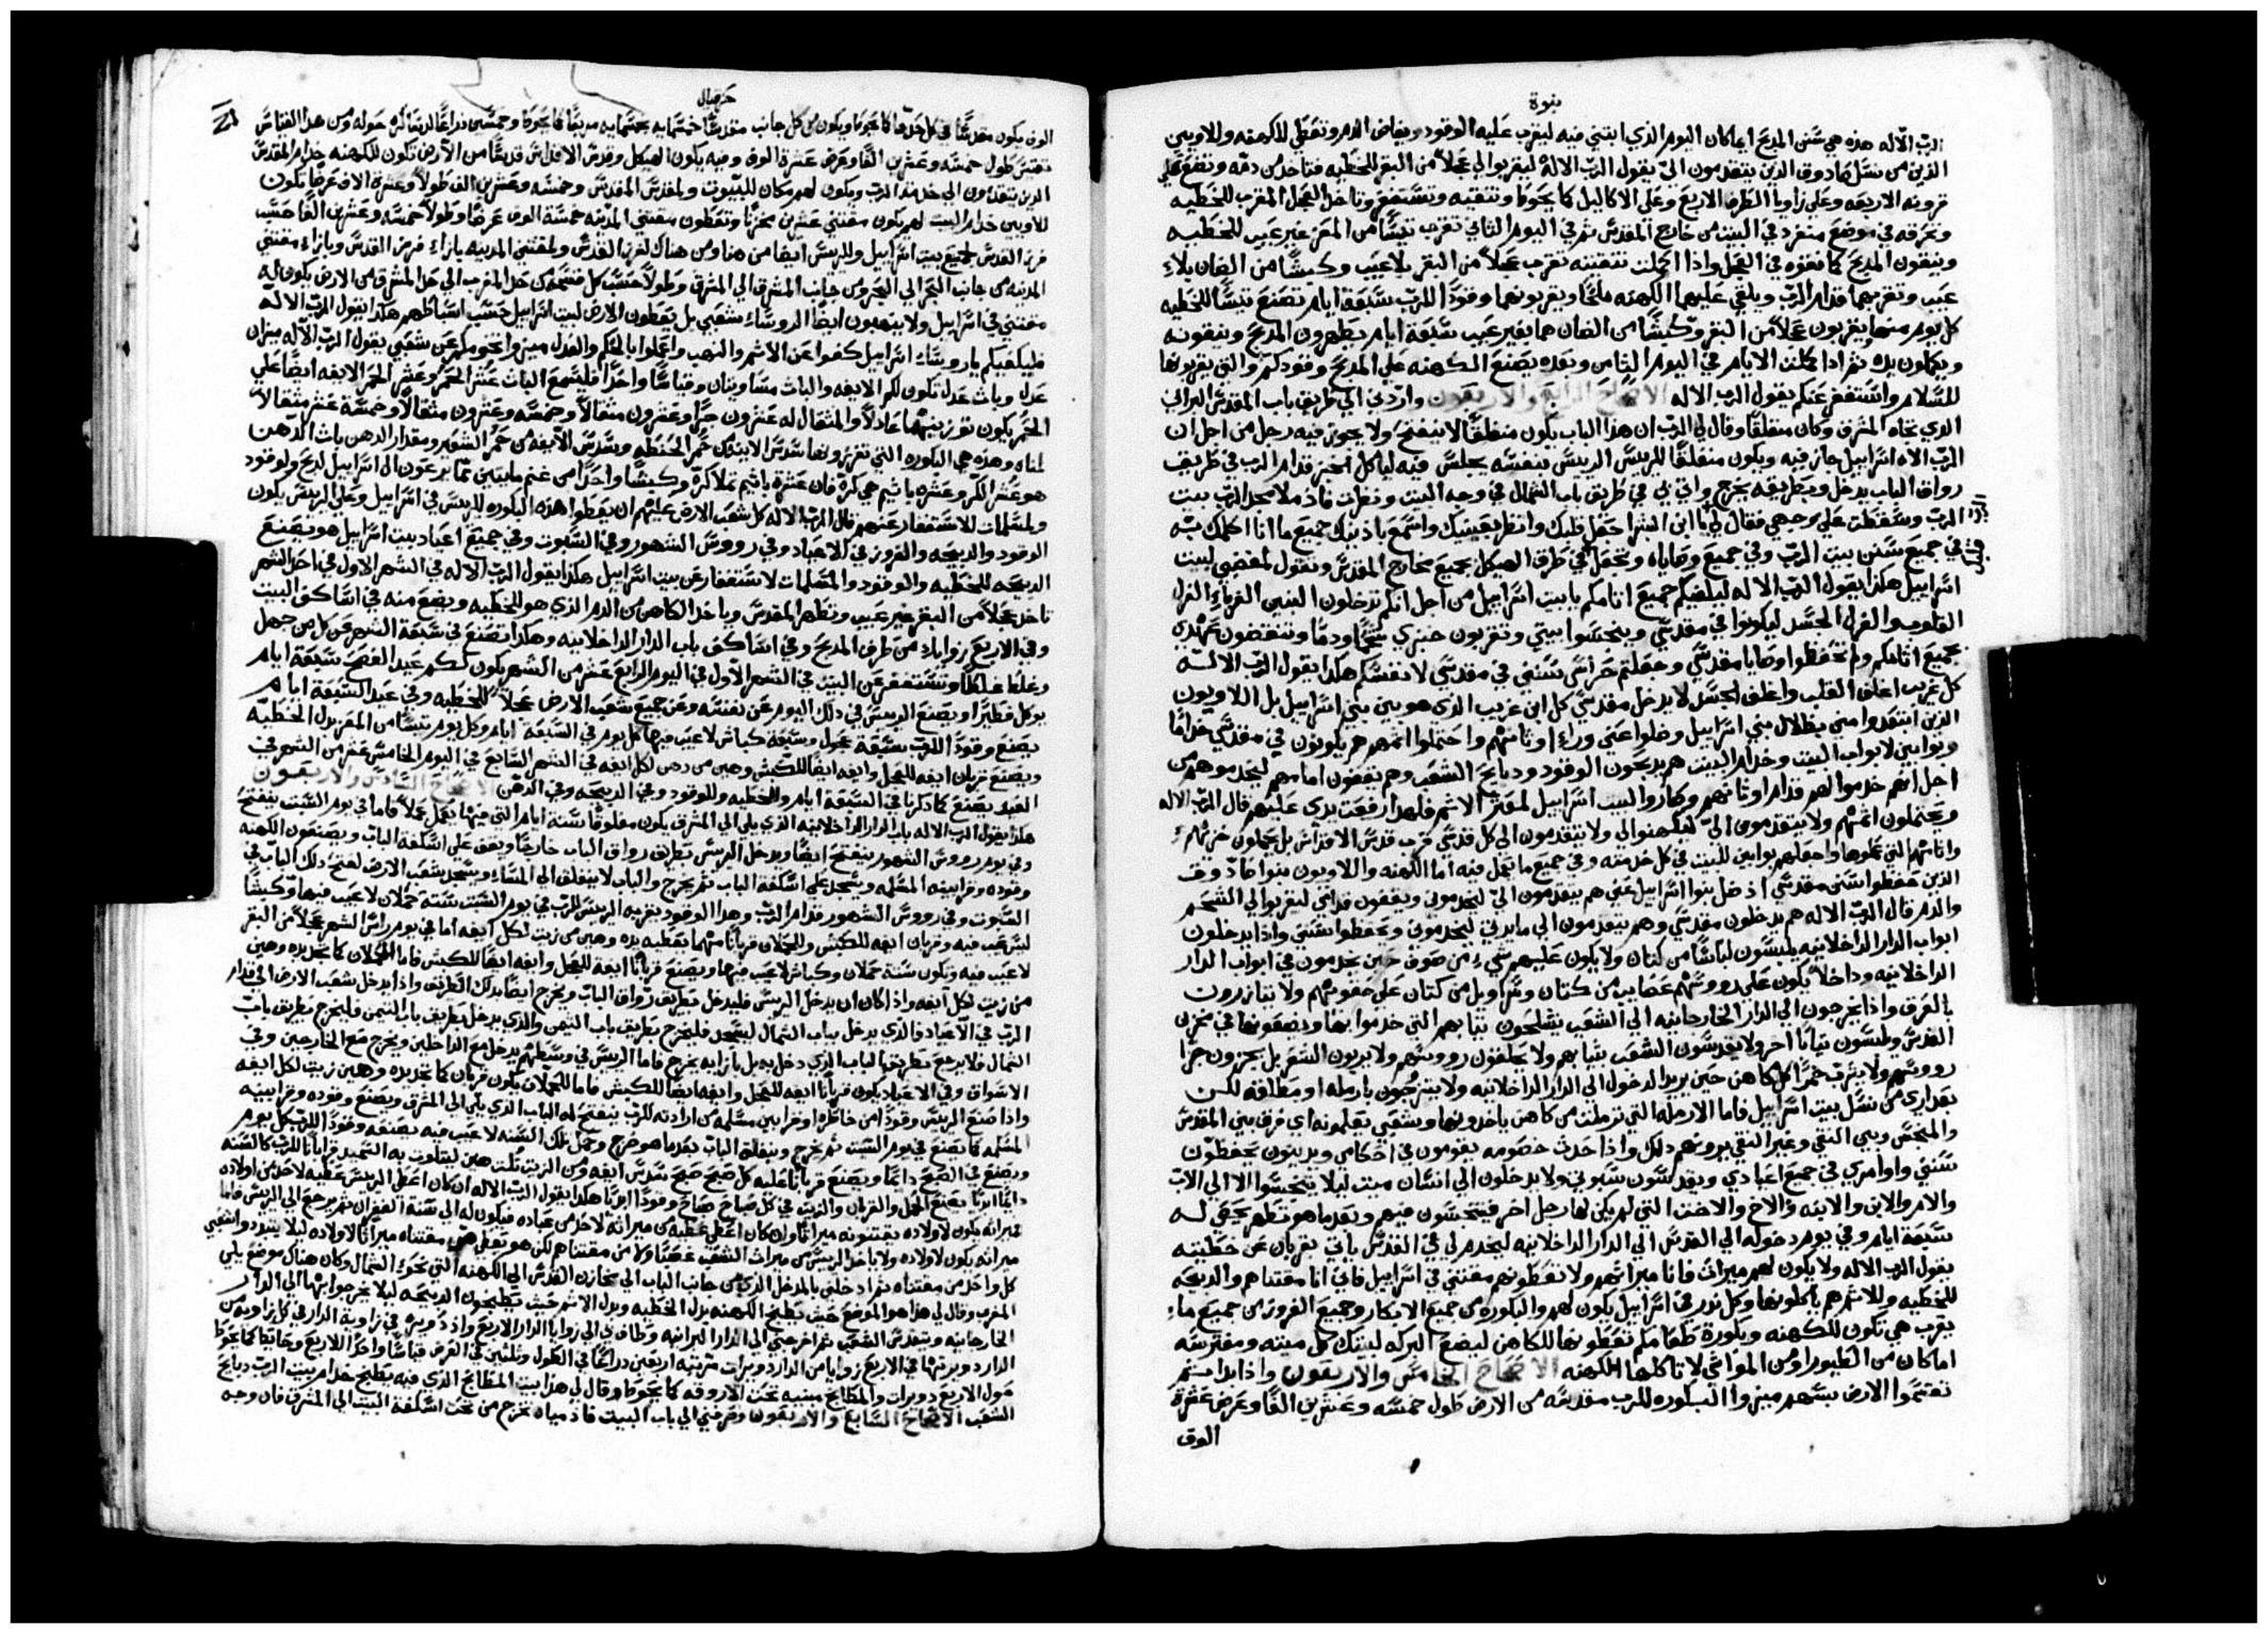 نبوة
الرب الاله هذه هي سنن المذبح ايما كان اليوم الذي ابتني فيه ليقرب عليه الوقود ويفاض الدم وتعطي للكهنه وللاويين
الذين من نسل صادوق الذين يتقدمون الىّ يقول الرب الاله ليقربوا لي عجلاً من البقر للخطيه فتاخذ من دمه وتضع علي
قرونه الاربعه وعلي زوايا الطرف الاربع وعلي الاكاليل كما يحوط وتنقيه وتستغفر وتاخذ العجل المقرب للخطيه
وتحرقه في موضع منفرد في البيت من خارج المقدس ثم في اليوم الثاني تقرب تيساً من المعز غير عيب للخطيه
وينقون المذبح كما نقوه في العجل واذا اكملت تنقيته تقرب عجلاً من البقر بلا عيب وكبشاً من الضان بلا
عيب وتقربهما قدام الرب ويلقي عليهما الكهنه ملحاً ويقربونهما وقوداً للرب سبعة ايام تصنع تيساً للخطيه
كل يوم منها ويقربون عجلاً من البقر وكبشاً من الضان هما بغير عيب سبعة ايام يطهرون المذبح وينقونه
ويكملون يده ثم اذا كملت الايام في اليوم الثامن وبعده يصنع الكهنه علي المذبح وقودكم والتي يقربونها
للسلام واستغفر عنكم يقول الرب الاله الاصحاح الرابع والاربعون واردني الي طريق باب المقدس البراني
الذي تجاه المشرق وكان منغلقاً وقال لي الرب ان هذا الباب يكون منغلقاً لا ينفتح ولا يجوز فيه رجل من اجل ان
الرب الاه اسراييل جاز فيه ويكون منغلقاً للريس الريس بنفسه يجلس فيه لياكل الخبز قدام الرب في طريق
رواق الباب يدخل وبطريقه يخرج واتي بي في طريق باب الشمال في وجه البيت ونظرت فاذ ملا مجد الرب بيت
الرب وسقطت علي وجهي فقال لي يا ابن البشر اجعل قلبك وانظر بعينيك واسمع باذنيك جميع ما انا اكلمك به
في جميع سنن بيت الرب وفي جميع وصاياه وتجعل في طرق الهيكل بجميع مخارج المقدس وتقول لمغضبي لبيت
اسراييل هكذا يقول الرب الاله ليكفيكم جميع اثامكم يا بيت اسراييل من اجل انكم تدخلون البنين الغرباء الغرل
القلوب والغرل الجسد ليكونوا في مقدسي وينجسوا بيتي وتقربون خبزي شحماً ودماً وتنقضون عهدي
بجميع اثامكم ولم تحفظوا وصايا مقدسي وجعلتم حراس سنني في مقدسي لانفسكم هكذا يقول الرب الاله
كل غريب اغلف القلب واغلف الجسد لا يدخل مقدسي كل ابن غريب الذي هو بين بني اسراييل بل اللاويون
الذين ابتعدوا مني بطلال بني اسراييل وضلوا عني وراء اوثانهم واحتملوا اثمهم هم يكونون في مقدسي خداماً
وبوابين لابواب البيت وخدام البيت هم يذبحون الوقود وذبايح الشعب وهم يقفون امامهم ليخدموهم من
اجل انهم خدموا لهم قدام اوثانهم وصاروا لبيت اسراييل لمعثر الاثم فلهذا رفعت يدي عليهم قال الرب الاله
ويحتملون اثمهم ولا يتقدمون الىّ ليكهنوا لي ولا يتقدمون الي كل قدسي قرب قدس الاقداس بل يحملون خزيهم
واثامهم التي عملوها واجعلهم بوابين للبيت في كل خدمته وفي جميع ما يعمل فيه اما الكهنه واللاويون بنوا صادوق
الذين حفظوا سنن مقدسي اذ ضل بنوا اسراييل عني هم يتقدمون الىّ ليخدموني ويقفون قدامي ليقربوا لي الشحم
والدم قال الرب الاله هم يدخلون مقدسي وهم يتقدمون الي مايدتي ليخدموني ويحفظوا سنتي واذا يدخلون
ابواب الدار الداخلانيه يلبسون لباساً من كتان ولا يكون عليهم شيء من صوف حين يخدمون في ابواب الدار
الداخلانيه وداخلاً يكون علي رووسهم عصايب من كتان وسراويل من كتان علي حقوهم ولا يتازرون
بالعرق واذا يخرجون الي الدار الخارجانيه الي الشعب يشلحون ثيابهم التي خدموا بها ويضعونها في مخزن
القدس ويلبسون ثياباً اخر ولا يقدسون الشعب بثيابهم ولا يحلقون رووسهم ولا يربون الشعر بل يجزون جزاً
رووسهم ولا يشرب خمراً كل كاهن حين يريد الدخول الي الدار الداخلانيه ولا يتزوجون بارمله او مطلقه لكن
بعذاري من نسل بيت اسراييل فاما الارمله التي ترملت من كاهن ياخذونها وشعبي يعلمونه اي فرق بين المقدس
والمنجس وبين النقي وغير النقي يرونهم ذلك واذا حدث خصومه يقومون في احكامي ويدينون يحفظون
سنني واوامري في جميع اعيادي ويقدسون سبوتي ولا يدخلون الي انسان ميت ليلا يتنجسوا الا الي الاب
والام والابن والابنه والاخ والاخت التي لم يكن لها رجل اخر فيتنجسون فيهم وبعد ما هو تطهر يحصي له
سبعة ايام وفي يوم دخوله الي القدس الي الدار الداخلانيه ليخدم لي في القدس ياتي بقربان عن خطيته
يقول الرب الاله ولا يكون لهم ميراث فانا ميراثهم ولا تعطونهم مقتني في اسراييل فاني انا مقتناهم والذبيحه
للخطيه وللاثم هم ياكلونها وكل نذر في اسراييل يكون لهم والبكوره من جميع الابكار وجميع الفروز من جميع ما
يقرب هي تكون للكهنه وبكورة طعامكم تعطونها للكاهن ليضع البركه لبيتك كل ميته ومفترسه
اما كان من الطيور او من المواشي لا تاكلها الكهنه الاصحاح الخامس والاربعون واذا بدايتم
تقتسموا الارض بسهم ميزوا البكوره للرب مقدسه من الارض طول خمسه وعشرين الفاً وعرض عشرة
الوف
حزقيال
الوف يكون مقدساً في كل حدها كما يحوط ويكون من كل جانب مقدساً خمسمايه بخمسمايه مربعاً كما يحوط وخمسين ذراعاً لربضا له حوله ومن هذا القياس
تقتسم طول خمسه وعشرين الفاً وعرض عشرة الوف وفيه يكون الهيكل وقدس الاقداس قدساً من الارض تكون للكهنه خدام المقدس
الذين يتقدمون الي خدمة الرب ويكون لهم مكان للبيوت ولمقدس المقدس وخمسه وعشرين الف طولاً وعشرة الاف عرضاً تكون
للاويين خدام البيت لهم يكون مقتني عشرين مخزناً وتعطون مقتني المدينه خمسة الوف عرضاً وطولاً خمسه وعشرين الفاً حسب
فرز القدس لجميع بيت اسراييل وللريس ايضاً من هنا ومن هناك لفرز القدس ولمقتني المدينه بازاء فرز القدس وبازاء مقتني
المدينه من جانب البحر الي البحر ومن جانب المشرق الي المشرق وطولاً حسب كل قسم من حد المغرب الي حد المشرق من الارض يكون له
مقتني في اسراييل ولا ينهبون ايضاً الروساء شعبي بل يعطون الارض لبيت اسراييل حسب اسباطهم هكذا يقول الرب الاله
فليكفيكم يا روساء اسراييل كفوا عن الاثم والنهب واعملوا بالحكم والعدل ميزوا تخومكم عن شعبي يقول الرب الاله ميزان
عدل وباث عدل تكون لكم الايفه والباث متساويتان وقياساً واحداً فليسع الباث عشر الحمر وعشر الحمر الايفه ايضاً علي
الحمر يكون توزيعهما عادلاً والمثقال له عشرون جراً وعشرون مثقالاً وخمسه وعشرون مثقالاً وخمسة عشر مثقالاً
لمناه وهذه هي البكوره التي تفرزونها سدس الايفه من حمر الحنطه وسدس الايفه من حمر الشعير ومقدار الدهن باث الدهن
هو عشر الكر وعشره باثيم هي كره فان عشرة باثيم تملا كره وكبشاً واحداً من غنم مايتين مما يرعون ال اسراييل لذبح ولوقود
ولمسلمات للاستغفار عنهم قال الرب الاله كل شعب الارض عليهم ان يعطوا هذه البكوره للريس في اسراييل وعلي الريس يكون
الوقود والذبيحه والفروز في الاعياد وفي رووس الشهور وفي السبوت وفي جميع اعياد بيت اسراييل هو يصنع
الذبيحه للخطيه والوقود والمسلمات لاستغفار عن بيت اسراييل هكذا يقول الرب الاله في الشهر الاول في احد الشهر
تاخذ عجلاً من البقر غير عيب وتطهر المقدس وياخذ الكاهن من الدم الذي هو للخطيه ويضع منه في اساكف البيت
وفي الاربع زوايا من طرف المذبح وفي اساكف باب الدار الداخلانيه وهكذا تصنع في سبعة الشهر عن كل من جهل
وغلط غلطاً وتستغفر عن البيت في الشهر الاول في اليوم الرابع عشر من الشهر يكون لكم عيد الفصح سبعة ايام
يوكل فطيراً ويصنع الريس في ذلك اليوم عن نفسه وعن جميع شعب الارض عجلاً للخطيه وفي عيد السبعة ايام
يصنع وقوداً للرب سبعة عجول وسبعة كباش لا عيب فيها كل يوم في السبعة ايام وكل يوم تيساً من المعز بدل الخطيه
ويصنع قربان ايفه للعجل وايفه ايضاً للكبش وهين من دهن لكل ايفه في الشهر السابع في اليوم الخامس عشر من الشهر في
العيد يصنع كما ذكرنا في السبعة ايام وللخطيه وللوقود وفي الذبيحه وفي الدهن الاصحاح السادس والاربعون
هكذا يقول الرب الاله باب الدار الداخلانيه الذي يلي الي المشرق يكون مغلوقاً ستة ايام التي فيها يعمل عملاً فاما في يوم السبت ينفتح
وفي يوم رووس الشهور ينفتح ايضاً ويدخل الريس بطريق رواق الباب خارجاً ويقف علي اسكفة الباب ويصنعون الكهنه
وقوده وقرابينه المسلمه ويسجد علي اسكفة الباب ثم يخرج والباب لا ينغلق الي المساء ويسجد شعب الارض لفتح ذلك الباب في
السبوت وفي رووس الشهور قدام الرب وهذا الوقود يقربه الريس للرب في يوم السبت ستة حملان لا عيب فيها وكبشاً
ليس عيب فيه وقربان ايفه للكبش وللحملان قرباناً منهما يعطيه يده وهين من زيت لكل ايفه اما في يوم راس الشهر عجلاً من البقر
لا عيب فيه ويكون ستة حملان وكباش لا عيب فيها ويصنع قرباناً ايفة للعجل وايفه ايضاً للكبش فاما الحملان كما تجد يده وهين
من زيت لكل ايفه واذا كان ان يدخل الريس فليدخل بطريق رواق الباب ويخرج ايضاً بذلك الطريق واذا يدخل شعب الارض الي قدام
الرب في الاعياد فالذي يدخل بباب الشمال ليسجد فليخرج بطريق باب التيمن والذي يدخل بطريق باب التيمن فليخرج بطريق باب
الشمال فلا يرجع بطريق الباب الذي دخل به بل بازايه يخرج فاما الريس في وسطهم يدخل مع الداخلين ويخرج مع الخارجين وفي
الاسواق وفي الاعياد يكون قرباناً ايفه للعجل وايفه ايضاً للكبش فاما للحملان يكون قربان كما تجد يده وهين زيت لكل ايفه
واذا صنع الريس وقوداً من خاطره او قرابين مسلمه من ارادته للرب ينفتح له الباب الذي يلي الي المشرق ويصنع وقوده وقرابينه
المسلمه كما يصنع في يوم السبت ثم يخرج وينغلق الباب بعدما هو خرج وحمل تلك السنه لا عيب فيه يصنعه وقوداً للرب كل يوم
ويصنع في الصبح دايماً ويصنع قرباناً عليه كل صبح صبح سدس ايفه ومن الزيت ثلث هين ليتلوت به السميد قرباناً للرب كالسنه
دايماً ابدياً يصنع الحمل والقربان والزيت في كل صباح صباح وقوداً ابدياً هكذا يقول الرب الاله ان كان اعطي الريس عطيه لاحد من اولاده
ميراثه يكون لاولاده يقتنونه ميراثاً وان كان اعطي عطيه من ميراثه لاحد من عباده فيكون له الي سنة الغفران ثم يرجع الي الريس فاما
ميراثه يكون لاولاده ولا ياخذ الريس من ميراث الشعب غصباً ولا من مقتناهم لكن هو يعطي من مقتناه ميراثاً لاولاده ليلا يتبدد شعبي
كل واحد من مقتناه ثم ادخلني بالمدخل الذي من جانب الباب الي مخازن القدس الي الكهنه التي نحو الشمال وكان هناك موضع يلي
المغرب وقال لي هذا هو الموضع حيث يطبخ الكهنه بدل الخطيه وبدل الاثم حيث يطبخون الذبيحه ليلا يخرجوا بها الي الدار
الخارجانيه ويتقدس الشعب ثم اخرجني الي الدار البرانيه وطاف بي الي زوايا الدار الاربع واذ دويره في زاوية الدار في كل زاويه من
الدار دويرتها في الاربع زوايا من الدار دويرات مرتبه اربعين ذراعاً في الطول وثلثين في العرض قياساً واحداً للاربع وحايطاً كما يحوط
حول الاربع دويرات والمطابخ مبنيه تحت الاروقه كما يحوط وقال لي هذا بيت المطابخ الذي فيه يطبخ خدام بيت الرب ذبايح
الشعب الاصحاح السابع والاربعون وصرفني الي باب البيت فاذ مياه تخرج من تحت اسكفة البيت الي المشرق فان وجه